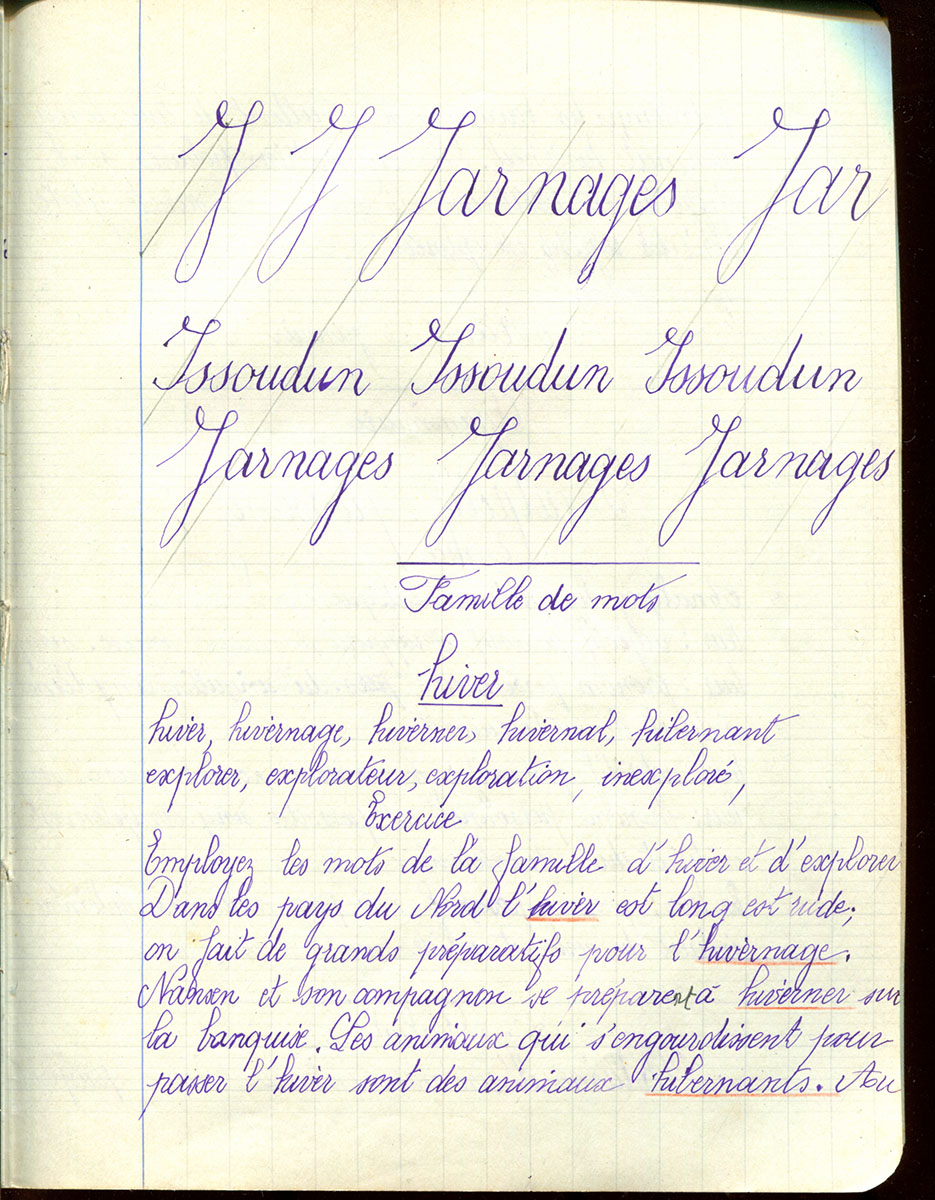 J J Jarnages Jar
Issoudun Issoudun Issoudun
Jarnages Jarnages Jarnages
Famille de mots
hiver
hiver, hivernage, hiverner, hivernal, hibernant
explorer, explorateur, exploration, inexploré,
Exercice
Employez les mots de la famille d'hiver et d'explorer
Dans les pays du Nord l'hiver est long est rude;
on fait de grands préparatifs pour l'hivernage.
Nansen et son compagnon se préparent à hiverner sur
la banquise. Les animaux qui s'engourdissent pour
passer l'hiver sont des animaux hibernants. Au